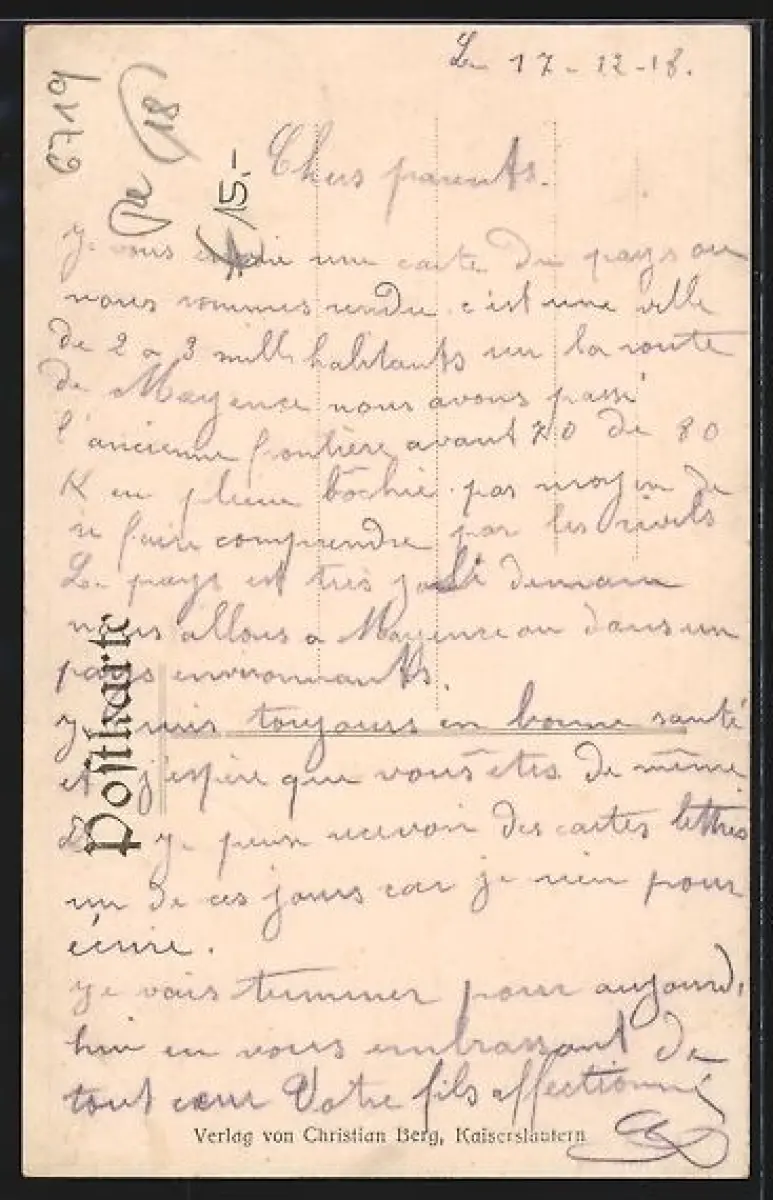 Le 17-12-18.
6719
18
15.-
Chers parents.
Je vous envoie une carte du pays ou
nous sommes rendu c'est une ville
de 2 a 3 mille habitants sur la route
de Mayence nous avons passé
l'ancienne frontière avant 70 de 80
K en pleine bôchie. pas moyen de
se faire comprendre par les civils
Le pays est très joli demain
nous allons a Mayence ou dans un
pays environnants.
Je suis toujours en bonne santé
et j'espère que vous êtes de même
je peux recevoir des cartes lettres
un de ces jours car je rien pour
écrire.
Je vais terminer pour aujourd'
hui en vous embrassant de
tout cœur Votre fils affectionné
Postkarte
Verlag von Christian Berg, Kaiserslautern